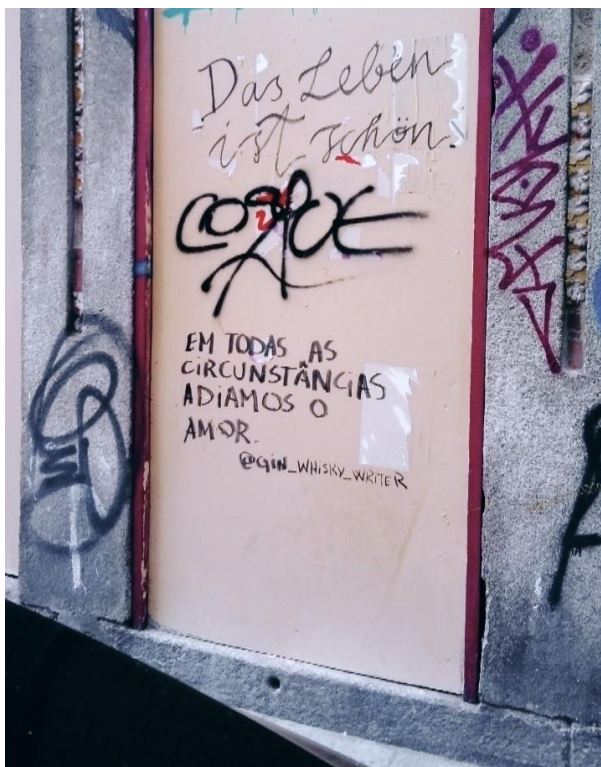 Das Leben
ist schön.
EM TODAS AS
CIRCUNSTÂNCIAS
ADIAMOS O
AMOR.
@GIN_WHISKY_WRITER